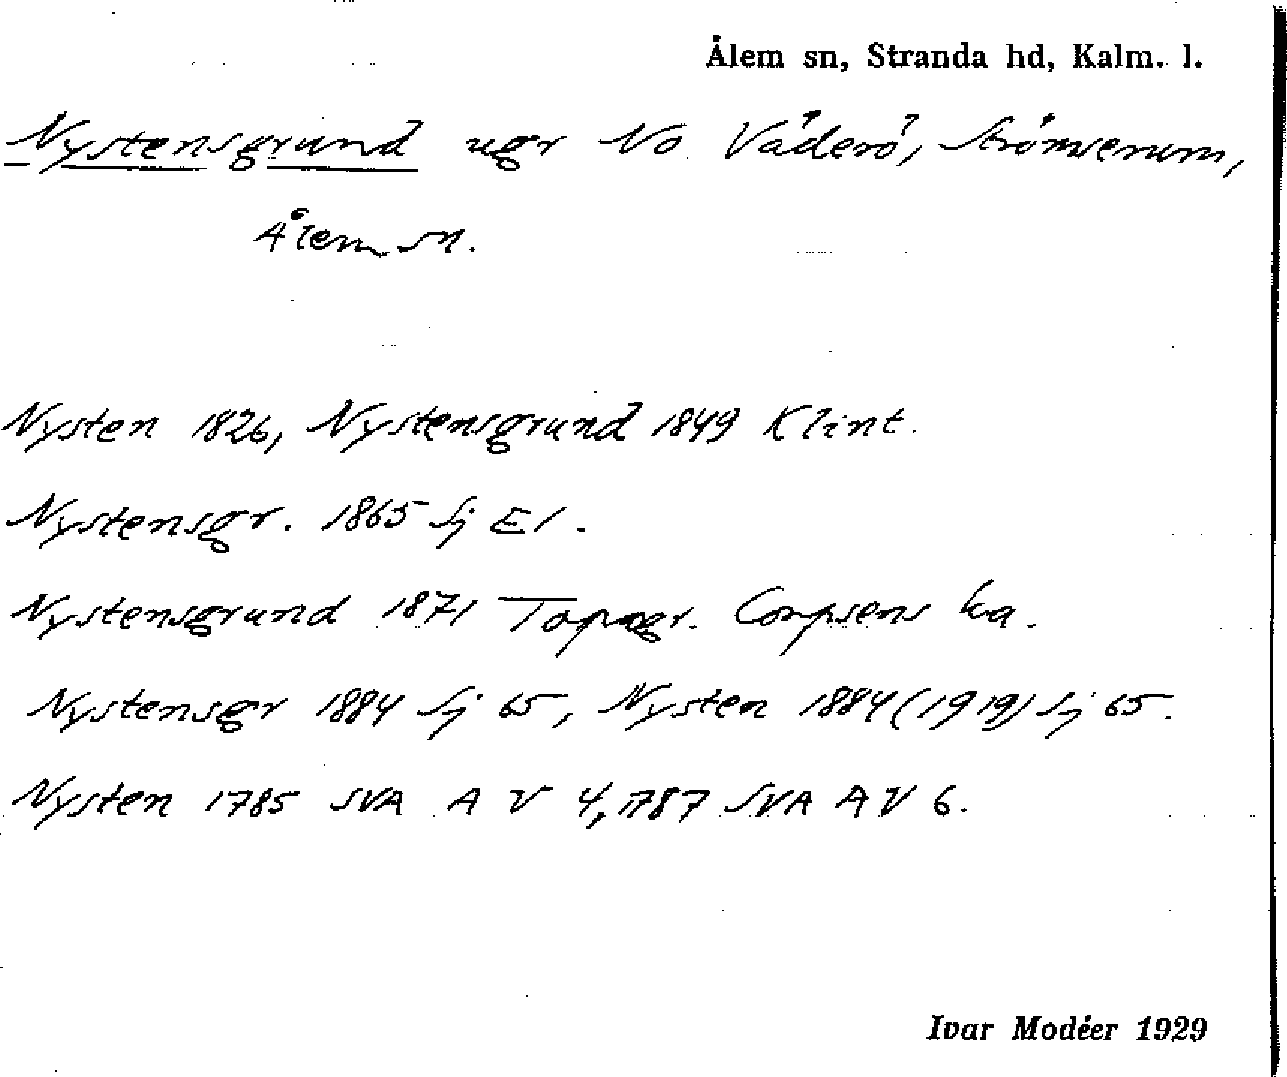 Ålem sn, Stranda hd, Kalm. l.
Nystensgrund ugr No Väderö, Strömserum,
Ålem sn.
Nysten 1826, Nystensgrund 1849 Klint.
Nystensgr. 1865 Sj E1.
Nystensgrund 1871 Topogr. Corpsens ka.
Nystensgr 1884 Sj 65, Nysten 1884 (1919) Sj 65.
Nysten 1785 SVA A V 4, 1787 SVA A V 6.
Ivar Modéer 1929